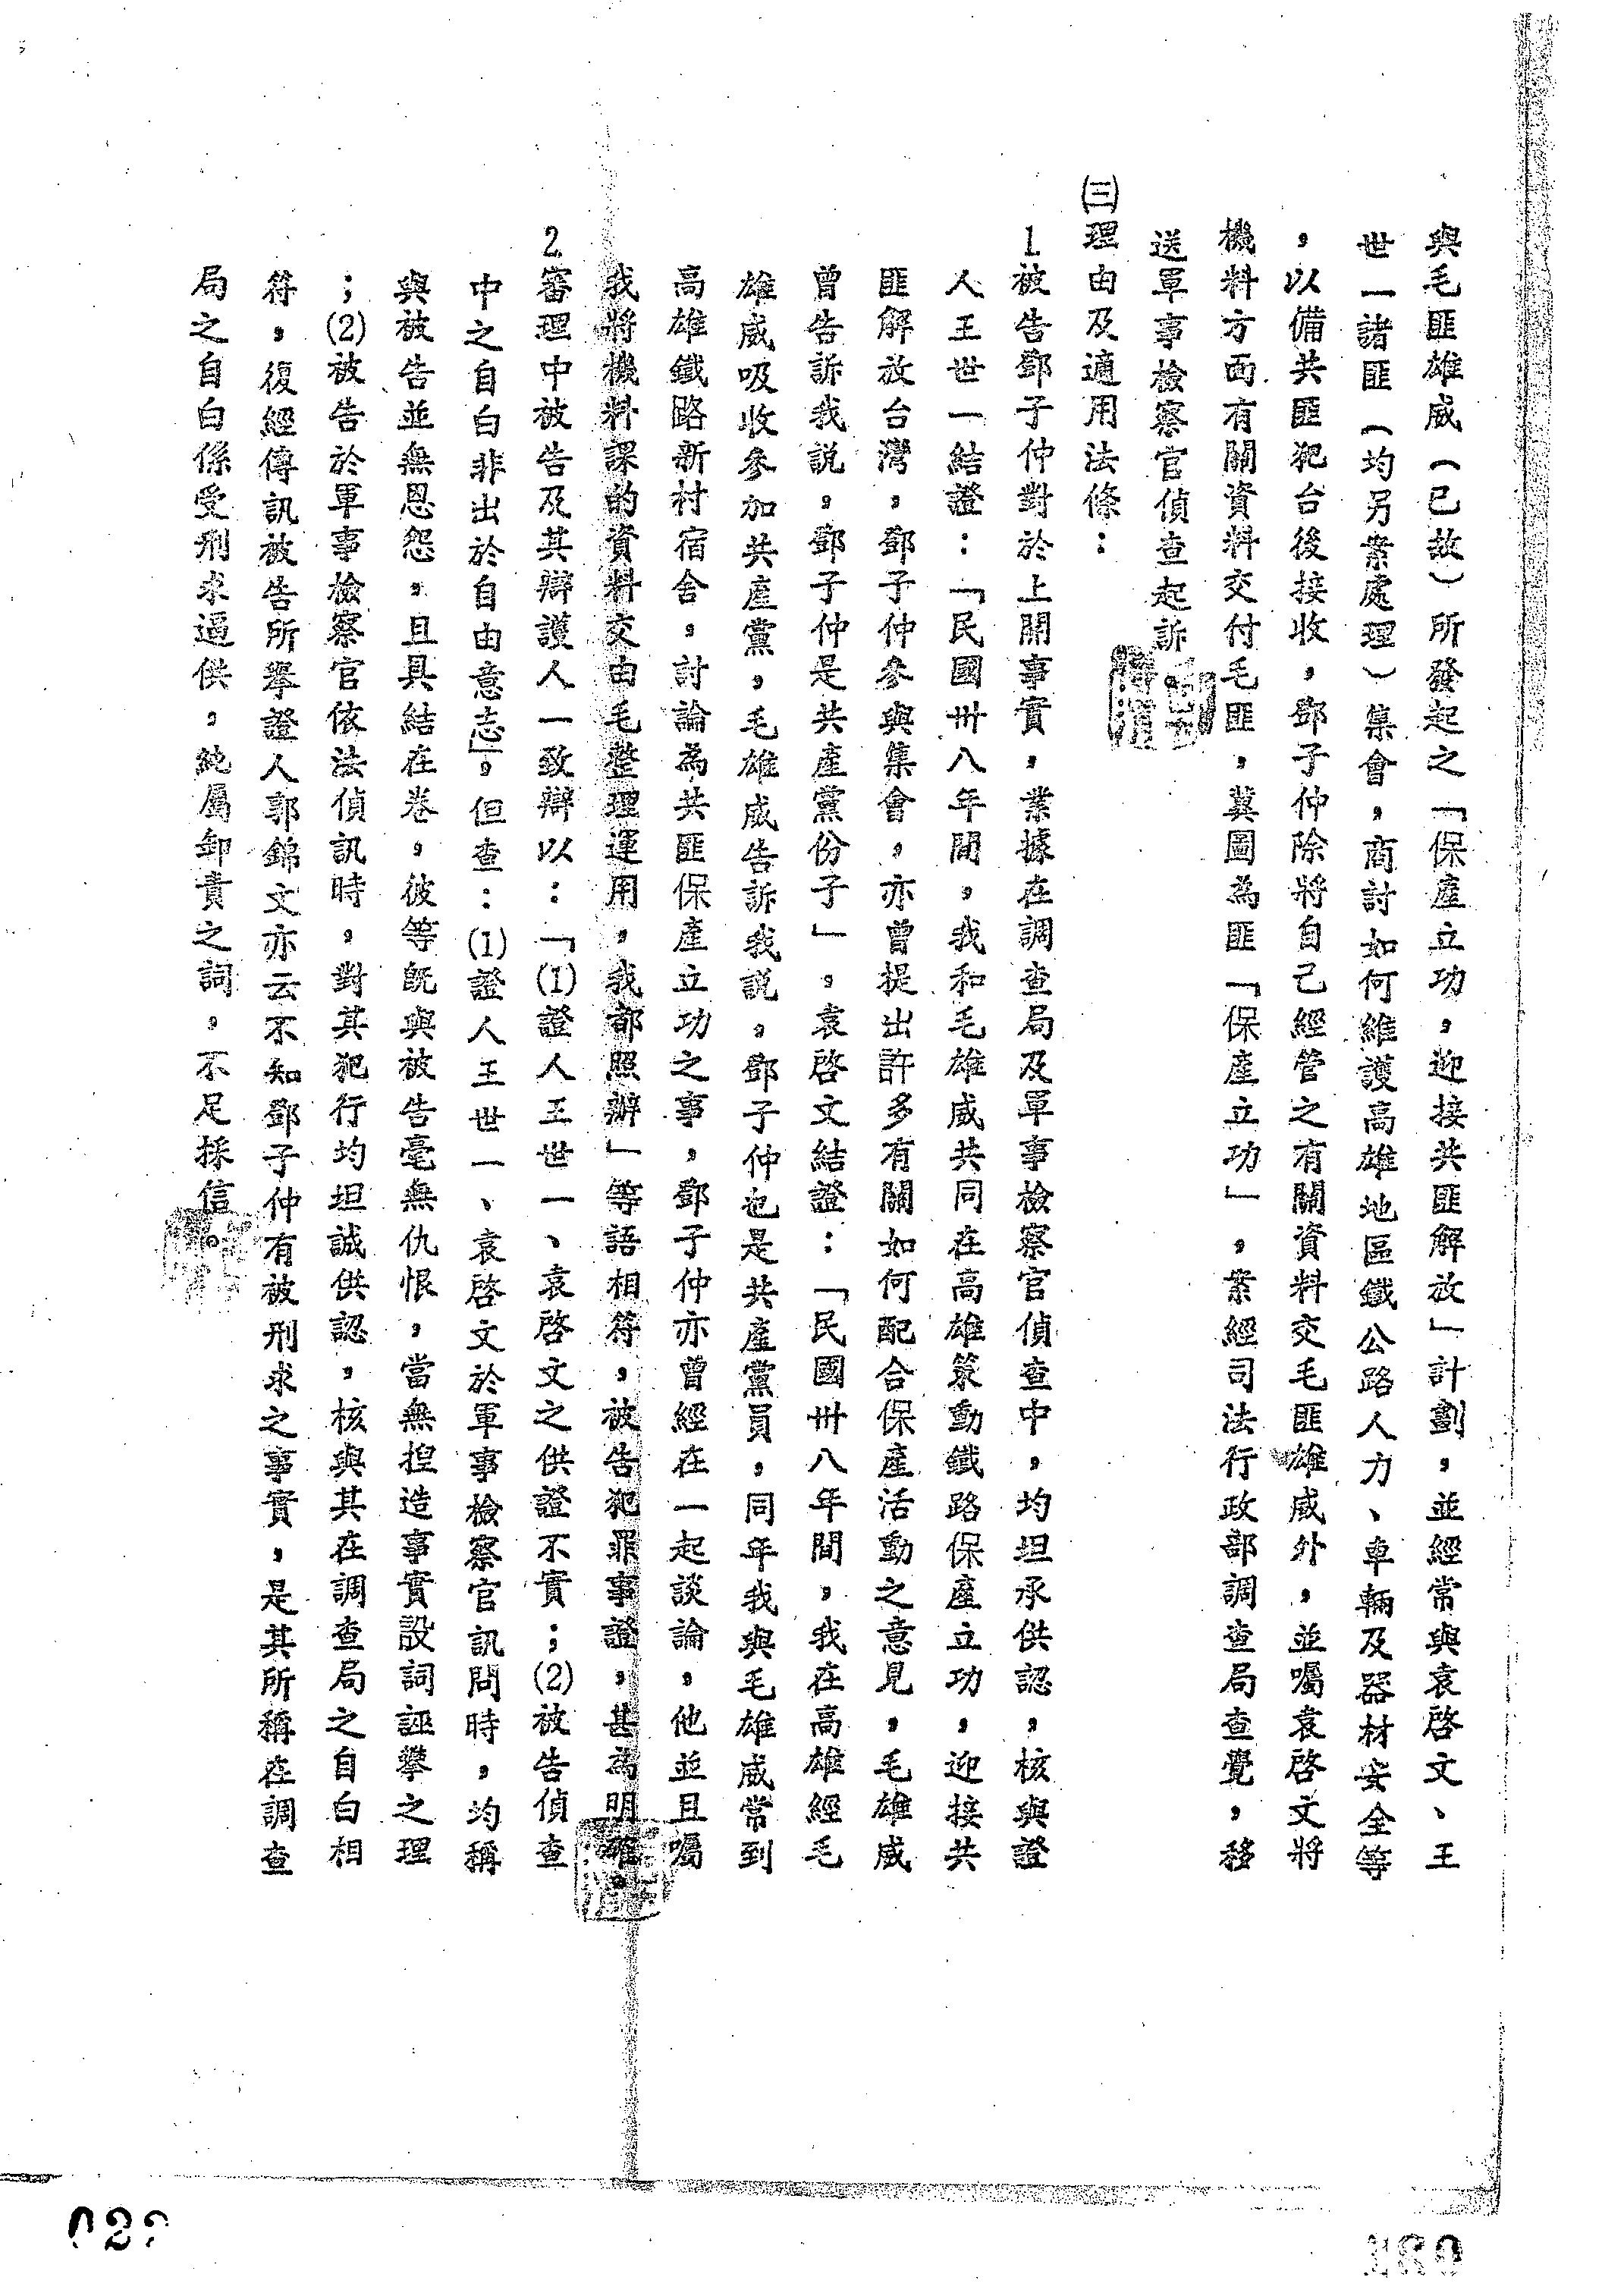 與毛匪雄威（已故）所發起之「保產立功，迎接共匪解放」計劃，並經常與袁啓文、王
世一諸匪（均另案處理）集會，商討如何維護高雄地區鐵公路人力、車輛及器材安全等
，以備共匪犯台後接收，鄧子仲除將自己經管之有關資料交毛匪雄威外，並囑袁啓文將
機料方面有關資料交付毛匪，冀圖為匪「保產立功」，案經司法行政部調查局查覺，移
送軍事檢察官偵查起訴。
㈢理由及適用法條：
1被告鄧子仲對於上開事實，業據在調查局及軍事檢察官偵查中，均坦承供認，核與證
人王世一結證：「民國卅八年間，我和毛雄威共同在高雄策動鐵路保產立功，迎接共
匪解放台灣，鄧子仲參與集會，亦曾提出許多有關如何配合保產活動之意見，毛雄威
曾告訴我說，鄧子仲是共產黨份子」。袁啓文結證：「民國卅八年間，我在高雄經毛
雄威吸收參加共產黨，毛雄威告訴我說，鄧子仲也是共產黨員，同年我與毛雄威常到
高雄鐵路新村宿舍，討論為共匪保產立功之事，鄧子仲亦曾經在一起談論，他並且囑
我將機料課的資料交由毛整理運用，我都照辦」等語相符，被告犯罪事證，甚為明確。
2審理中被告及其辯護人一致辯以：「(1)證人王世一、袁啓文之供證不實；(2)被告偵查
中之自白非出於自由意志」，但查：(1)證人王世一、袁啓文於軍事檢察官訊問時，均稱
與被告並無恩怨，且具結在卷，彼等既與被告毫無仇恨，當無捏造事實設詞誣攀之理
；(2)被告於軍事檢察官依法偵訊時，對其犯行均坦誠供認，核與其在調查局之自白相
符，復經傳訊被告所舉證人郭錦文亦云不知鄧子仲有被刑求之事實，是其所稱在調查
局之自白係受刑求逼供，純屬卸責之詞，不足採信。